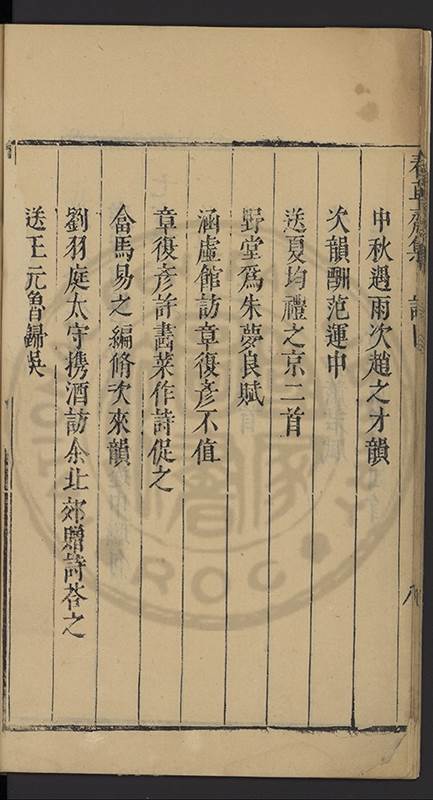 春草齋集 詩
中秋遇雨次趙之才韻
次韻酬范運中
送夏均禮之京二首
野堂爲朱夢良賦
涵虛館訪章復彥不值
章復彥許畵菜作詩促之
畣馬易之編脩次來韻
劉羽庭太守携酒訪余北郊贈詩荅之
送王元魯歸吳